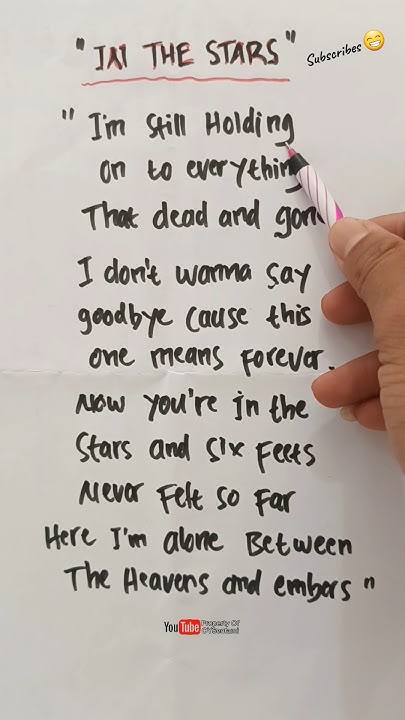 "IN THE STARS"
Subscribes
"I'm Still Holding
on to everything
That dead and gon
I don't wanna say
goodbye cause this
one means forever.
Now you're in the
Stars and six Feets
Never Felt so Far
Here I'm alone Between
The Heavens and embers"
YouTube Property Of